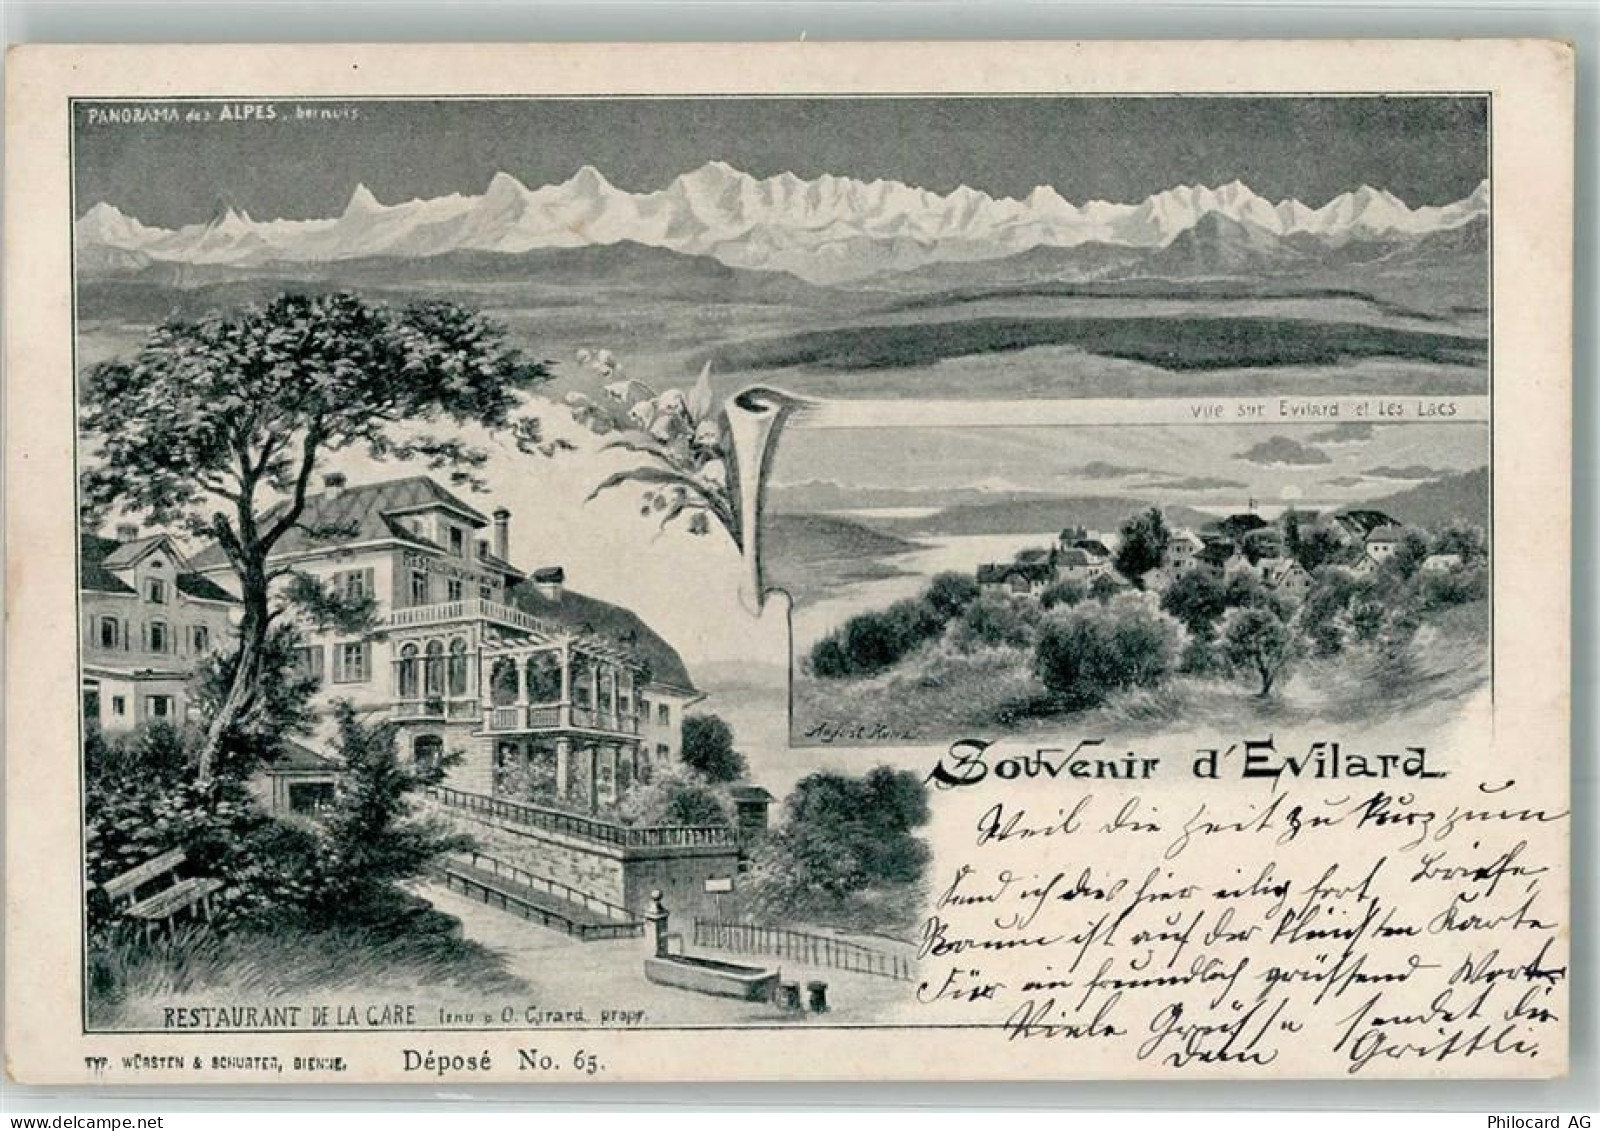 PANORAMA des ALPES. bernois.
Vue sur Evilard et Les Lacs
RESTAURANT DE LA GARE tenu p. O. Girard propr.
TYP. WÜRSTEN & SCHURTER, BIENNE. Déposé No. 65.
Souvenir d'Evilard
Weil die Zeit zu kurz zum Briefe,
Send ich dies hier eilig fort,
Raum ist auf der kleinsten Karte
Für ein freundlich grüssend Wort.
Viele Grüsse sendet dir
Dein Grittli.
Philocard AG